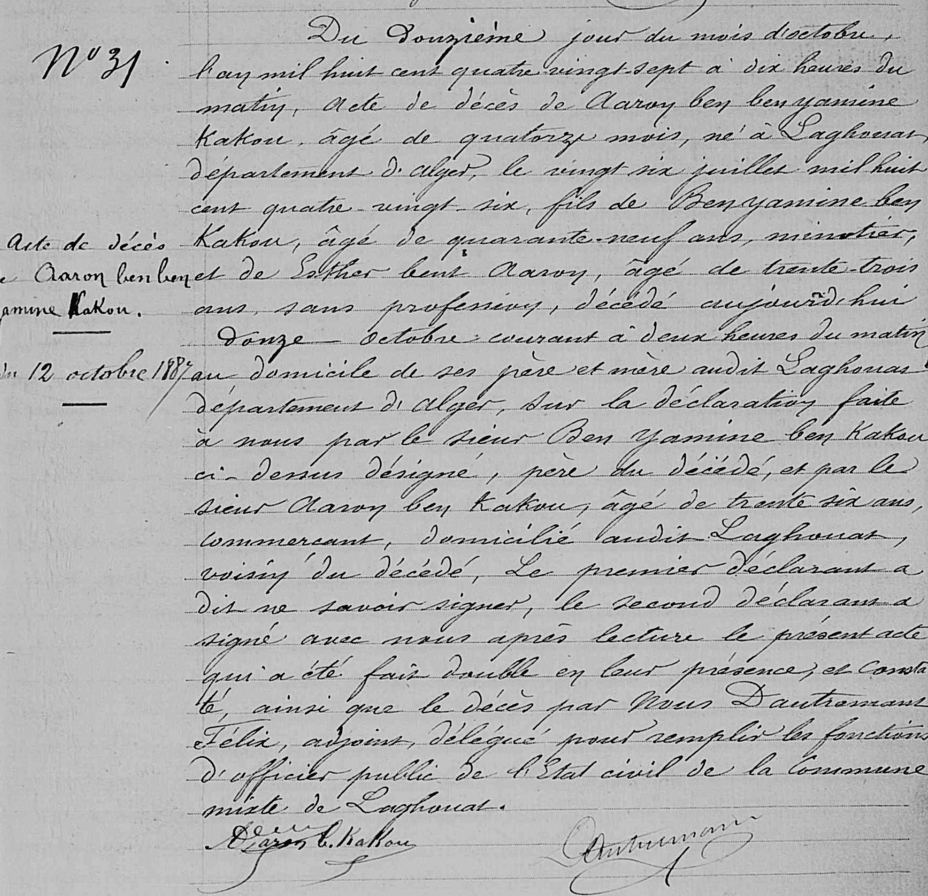 N° 31
Acte de décès
Aaron ben ben
yamine Kakou.
12 octobre 1887
Du douzième jour du mois d'octobre,
l'an mil huit cent quatre-vingt-sept à dix heures du
matin, acte de décès de Aaron ben ben yamine
Kakou, âgé de quatorze mois, né à Laghouat,
département d'Alger, le vingt six juillet mil huit
cent quatre-vingt-six, fils de Ben yamine ben
Kakou, âgé de quarante-neuf ans, minotier,
et de Esther bent Aaron, âgé de trente-trois
ans, sans profession, décédé aujourd'hui
douze octobre courant à deux heures du matin
au domicile de ses père et mère audit Laghouat
département d'Alger, sur la déclaration faite
à nous par le sieur Ben Yamine ben Kakou
ci-dessus désigné, père du décédé, et par le
sieur Aaron ben Kakou, âgé de trente six ans,
commercant, domicilié audit Laghouat,
voisin du décédé, Le premier déclarant a
dit ne savoir signer, le second déclarant a
signé avec nous après lecture le présent acte
qui a été fait double en leur présence, et consta
té, ainsi que le décès par Nous Dautremant
Félix, adjoint, délégué pour remplir les fonctions
d'officier public de l'Etat civil de la Commune
mixte de Laghouat.
Aaron b. Kakou